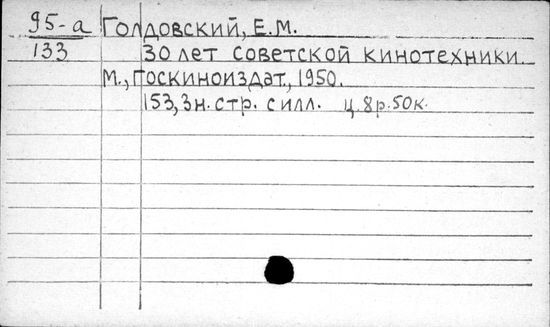 95-а Голдовский, Е.М.
133 30 лет советской кинотехники.
М., Госкиноиздат, 1950.
153, 3н. стр. с илл. ц. 8р. 50к.